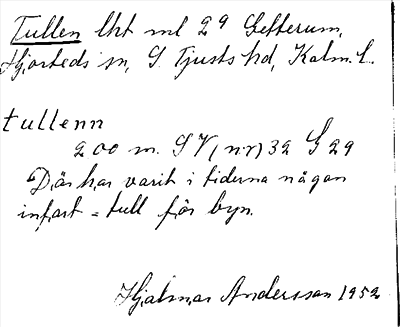 Tullen lht ml 2⁹ Getterum,
Hjorteds sn, S. Tjusts hd, Kalm. L.
tullenn
200 m. SV (nr) 32 G 29
Där har varit i tiderna någon
infart = tull för byn.
Hjalmar Andersson 1952